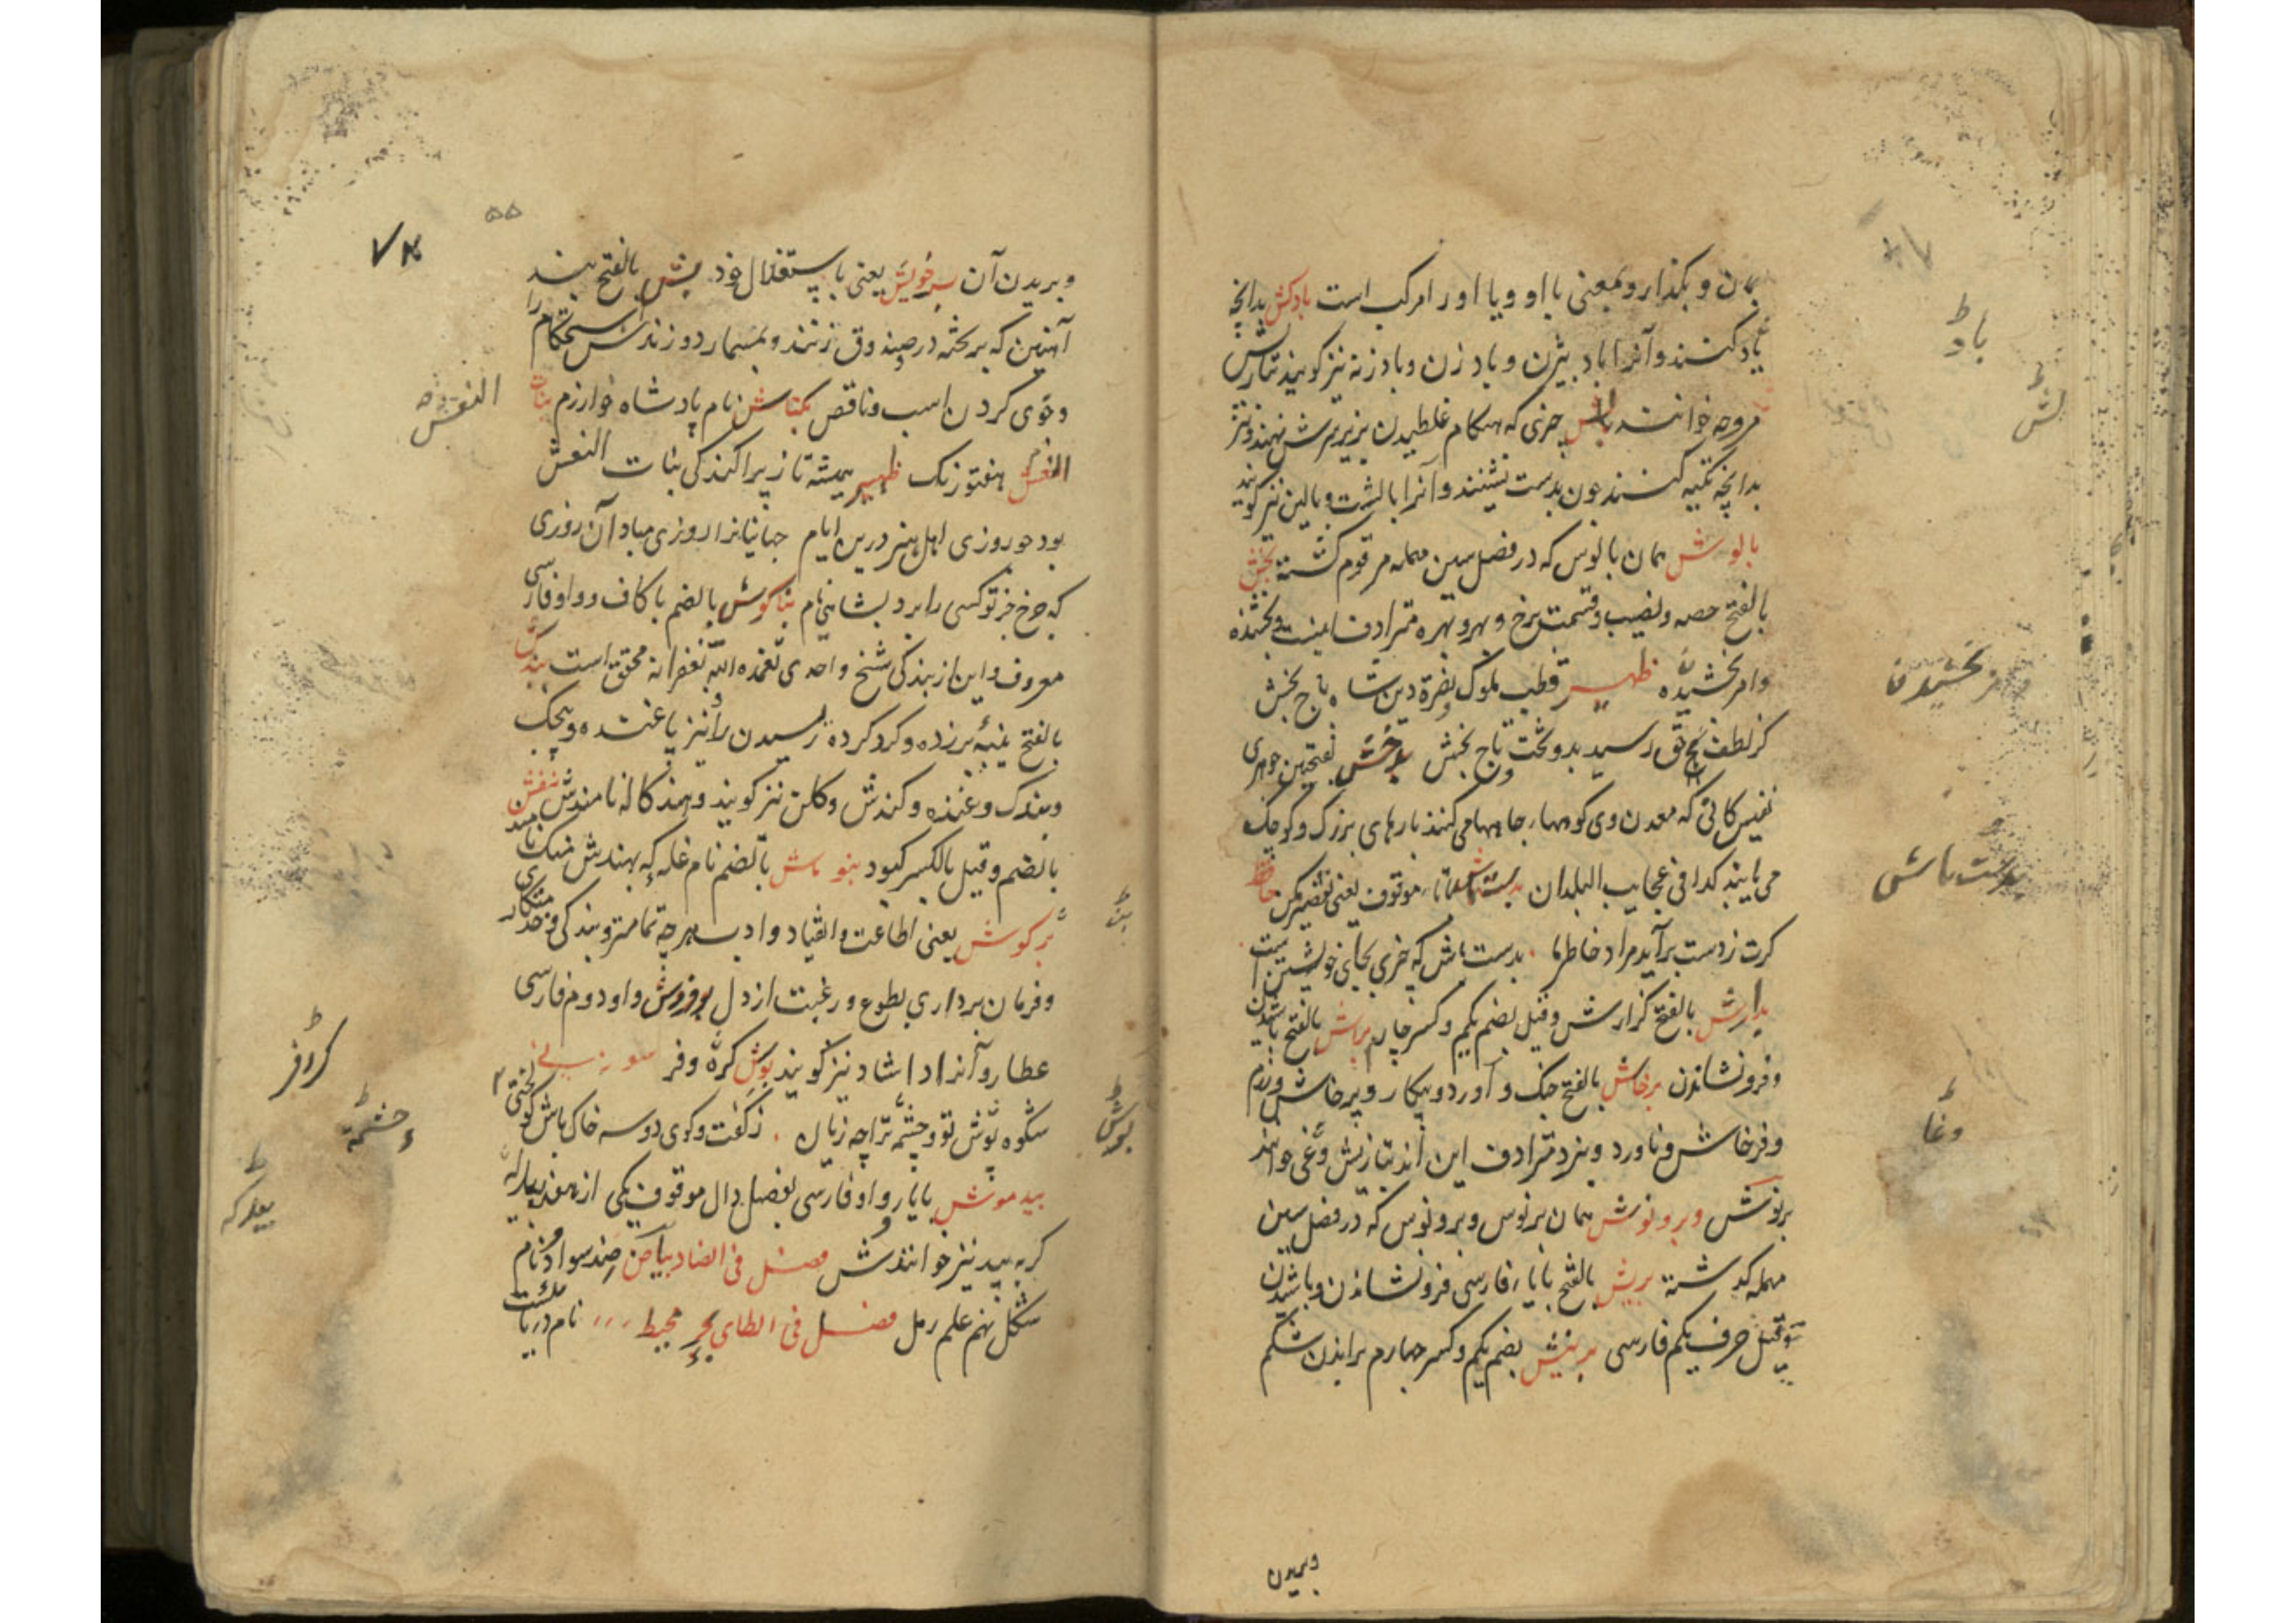 بمان و بگذار و بمعنی با او و یا اورامرکب است بادکش بدانچه
باد کنند و آنرا بادبیزن و بادزن و بادزنه نیز گویند تبازیش
مروحه خوانند بالش چیزی که هنگام غلطیدن بزیر سرش نهند و نیز
بدانچه تکیه کنند چون بدست نشینند و آنرا بالشت و بالین نیز گویند
بالوش همان بالوس که در فصل سین مهمله مرقوم گشته بخش
بالفتح حصه و نصیب و قسمت برخ و بهر و بهره مترادف اینست و بخشنده
وامر بخشیدن ظهیر قطب ملوک نصرة دین شاه تاج بخش
کز لطف حق رسید بدو تخت و تاج بخش بدخش بفتحین جوهری
نفیس کانی که معدن وی کوهها جا می کنند پارهای بزرگ و کوچک
می یابند کذا فی عجایب البلدان بدست باش موقوف یعنی تقصیر مکن حافظ
گرت ز دست برآید مراد خاطر ما بدست باش که خیری بجای خویشتن است
بدارش بالفتح گزارش وقیل بضم یکم و کسر چهارم براش بالفتح پاشیدن
و فرونشاندن برخاش بالفتح جنگ و آورد و پیکار و پرخاش و رزم
و فرخاش و ناورد و نبرد مترادف این اند بتازیش وغی خوانند
برنوش و برونوش همان برنوس و برونوس که در فصل سین
مهمله گذشته برش بالفتح بابای فارسی فرونشاندن و پاشیدن
وقیل حرف یکم فارسی برینش بضم یکم و کسر چهارم براندن شکم
وبریدن
باد
بخشیدن
بدست باش
وغا
۵۵
وبریدن آن بسرخویش یعنی باستقلال خود بش بالفتح بند
آهنین که بر تخته در صندوق زنند و بمسمار دوزندش استحکام را
وخوی کردن اسب و ناقص بکتاش نام پادشاه خوارزم بنات
النعش هفتورنگ ظهیر همیشه تا ز پراکندگی بنات النعش
بود چو روزی اهل هنر درین ایام جهانیانرا روزی مباد آن روزی
که چرخ جز تو کسی را برد بشاهی نام بناگوش بالضم با کاف و واو فارسی
معروف و این از بندگی شیخ واحدی تغمده الله بغفرانه محقق است بندش
بالفتح پنبه برزده و گرد کرده رسیدن را نیز پاغنده و پیچک
وبندک وغنده و کندش و کلن نیز گویند و هند کاله نامندش بنفش
بالضم وقیل بالکسر کبود بنوماش بالضم نام غله که بهندش منک نامند
بزگوش یعنی اطاعت و انقیاد و ادب بهرچه تمامتر و بندگی و خدمتکاری
و فرمان برداری بطوع و رغبت از دل بوفروش واو دوم فارسی
عطار و آنرا داشاد نیز گویند بوش کره وفر
شکوه بوش تو و چشم تراچه زیان
بیدموش بایا و واو فارسی بفصل دال موقوف یکی از هفت بیدکه
گربه بید نیز خوانندش فصل فی الضاد بیاض ضد سواد و نام
شکل نهم علم رمل فصل فی الطای بحر محیط نام دریائیست
النعش
کروفر
چشمة
بیدکه
بوش